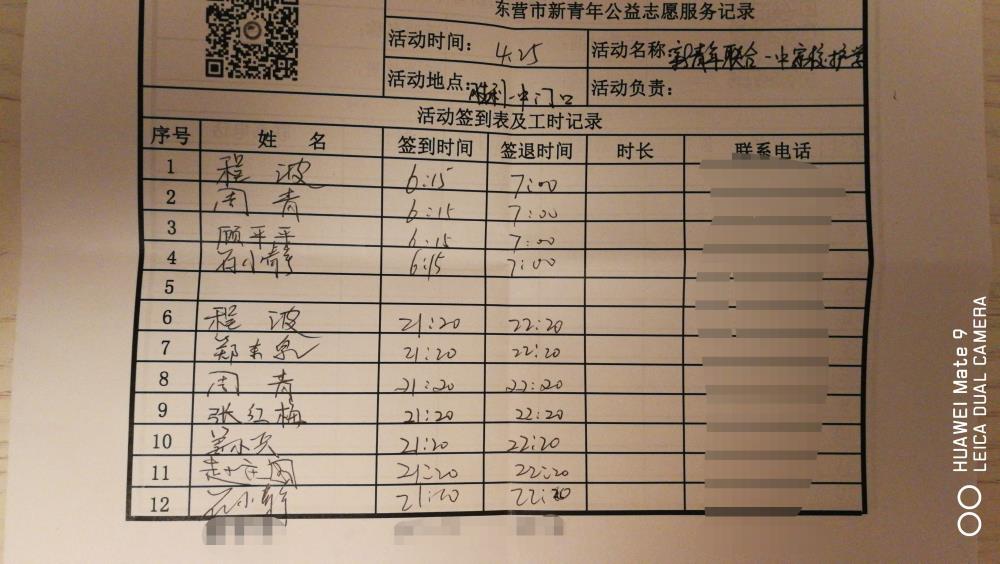 东营市新青年公益志愿服务记录
活动时间： 4.25 活动名称 新青年联合一中家校护学
活动地点： 胜利一中门口 活动负责：
活动签到表及工时记录
序号 姓 名 签到时间 签退时间 时长 联系电话
1 程波 6:15 7:00
2 周青 6:15 7:00
3 顾平平 6:15 7:00
4 石小静 6:15 7:00
5
6 程波 21:20 22:20
7 郑东泉 21:20 22:20
8 周青 21:20 22:20
9 张红梅 21:20 22:20
10 21:20 22:20
11 21:20 22:20
12 石小静 21:20 22:20
HUAWEI Mate 9
LEICA DUAL CAMERA